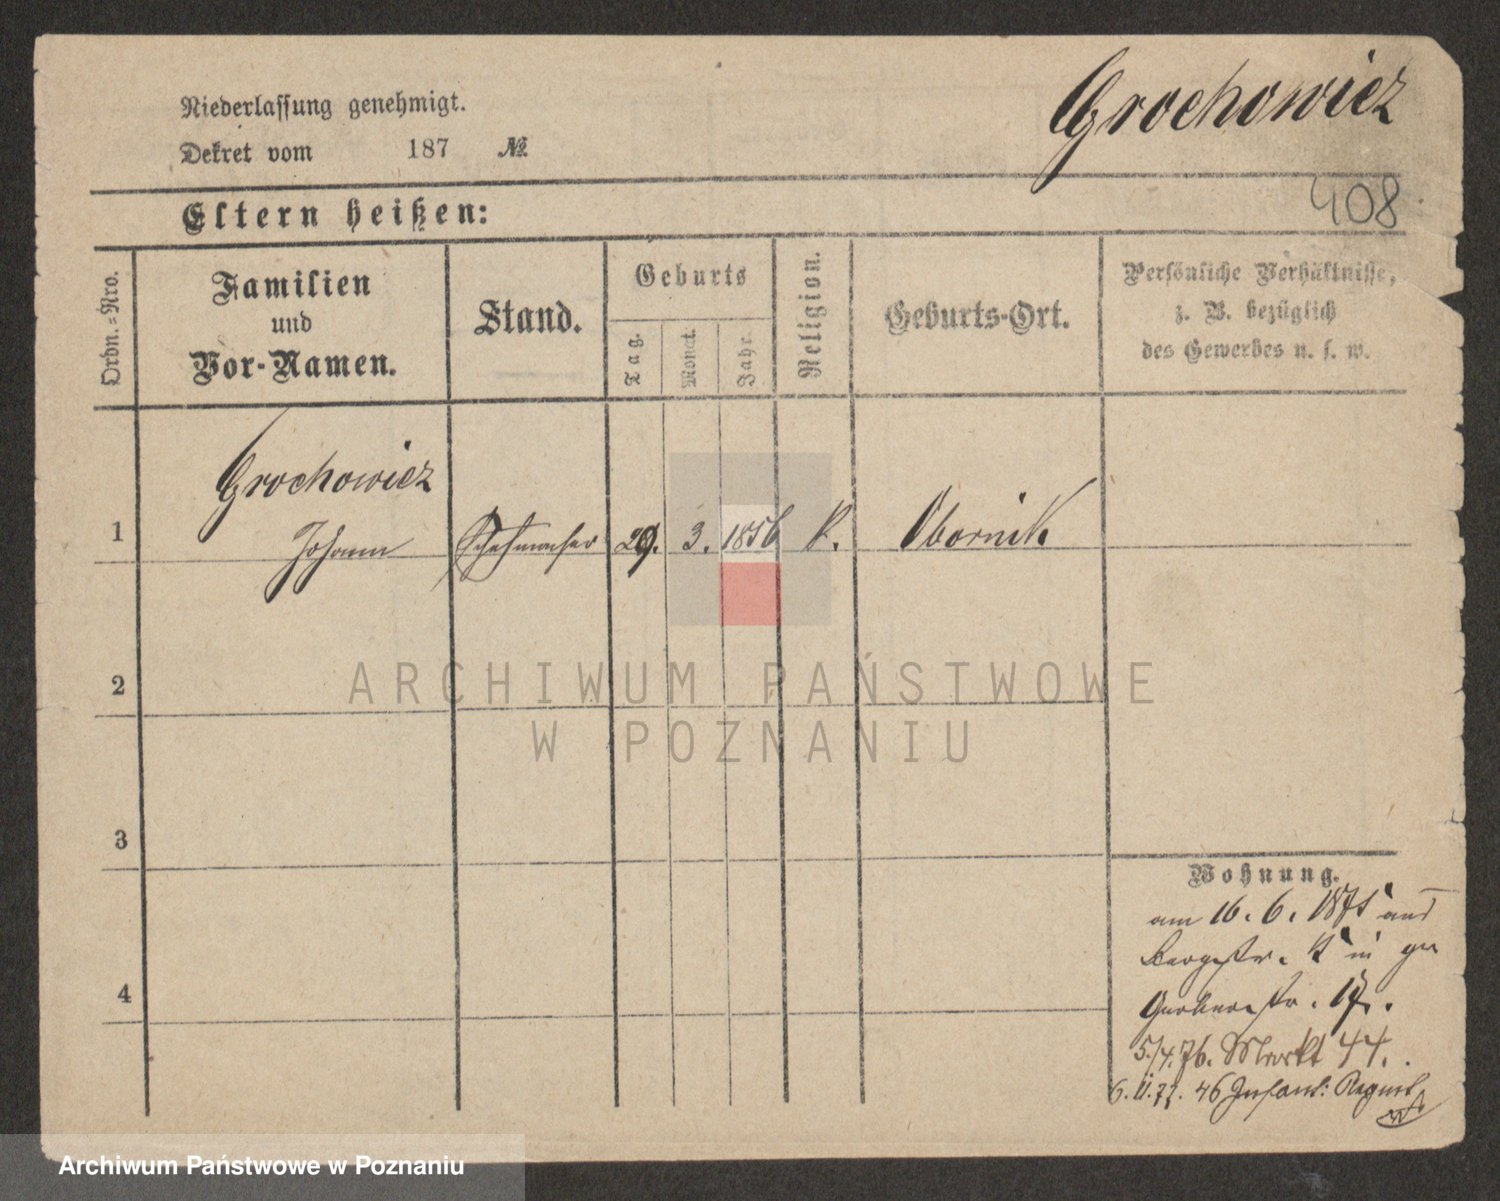 Grochowicz
Niederlassung genehmigt.
Dekret vom 187 №
408
Eltern heißen:
Ordn.-Nro.
Familien
und
Vor-Namen.
Stand.
Geburts
Tag.
Monat.
Jahr.
Religion.
Geburts-Ort.
Persönliche Verhältnisse,
z. B. bezüglich
des Gewerbes u. s. w.
Grochowicz
1 Johann Schuhmacher 29. 3. 1856 k. Obornik
2
ARCHIWUM PAŃSTWOWE
W POZNANIU
3
Wohnung.
am 16. 6. 1875 aus
Bergstr. in
4
Gerberstr. 17.
5./4.76. Markt 44.
6. 11. 77. 46 Infant: Regmt.
Archiwum Państwowe w Poznaniu